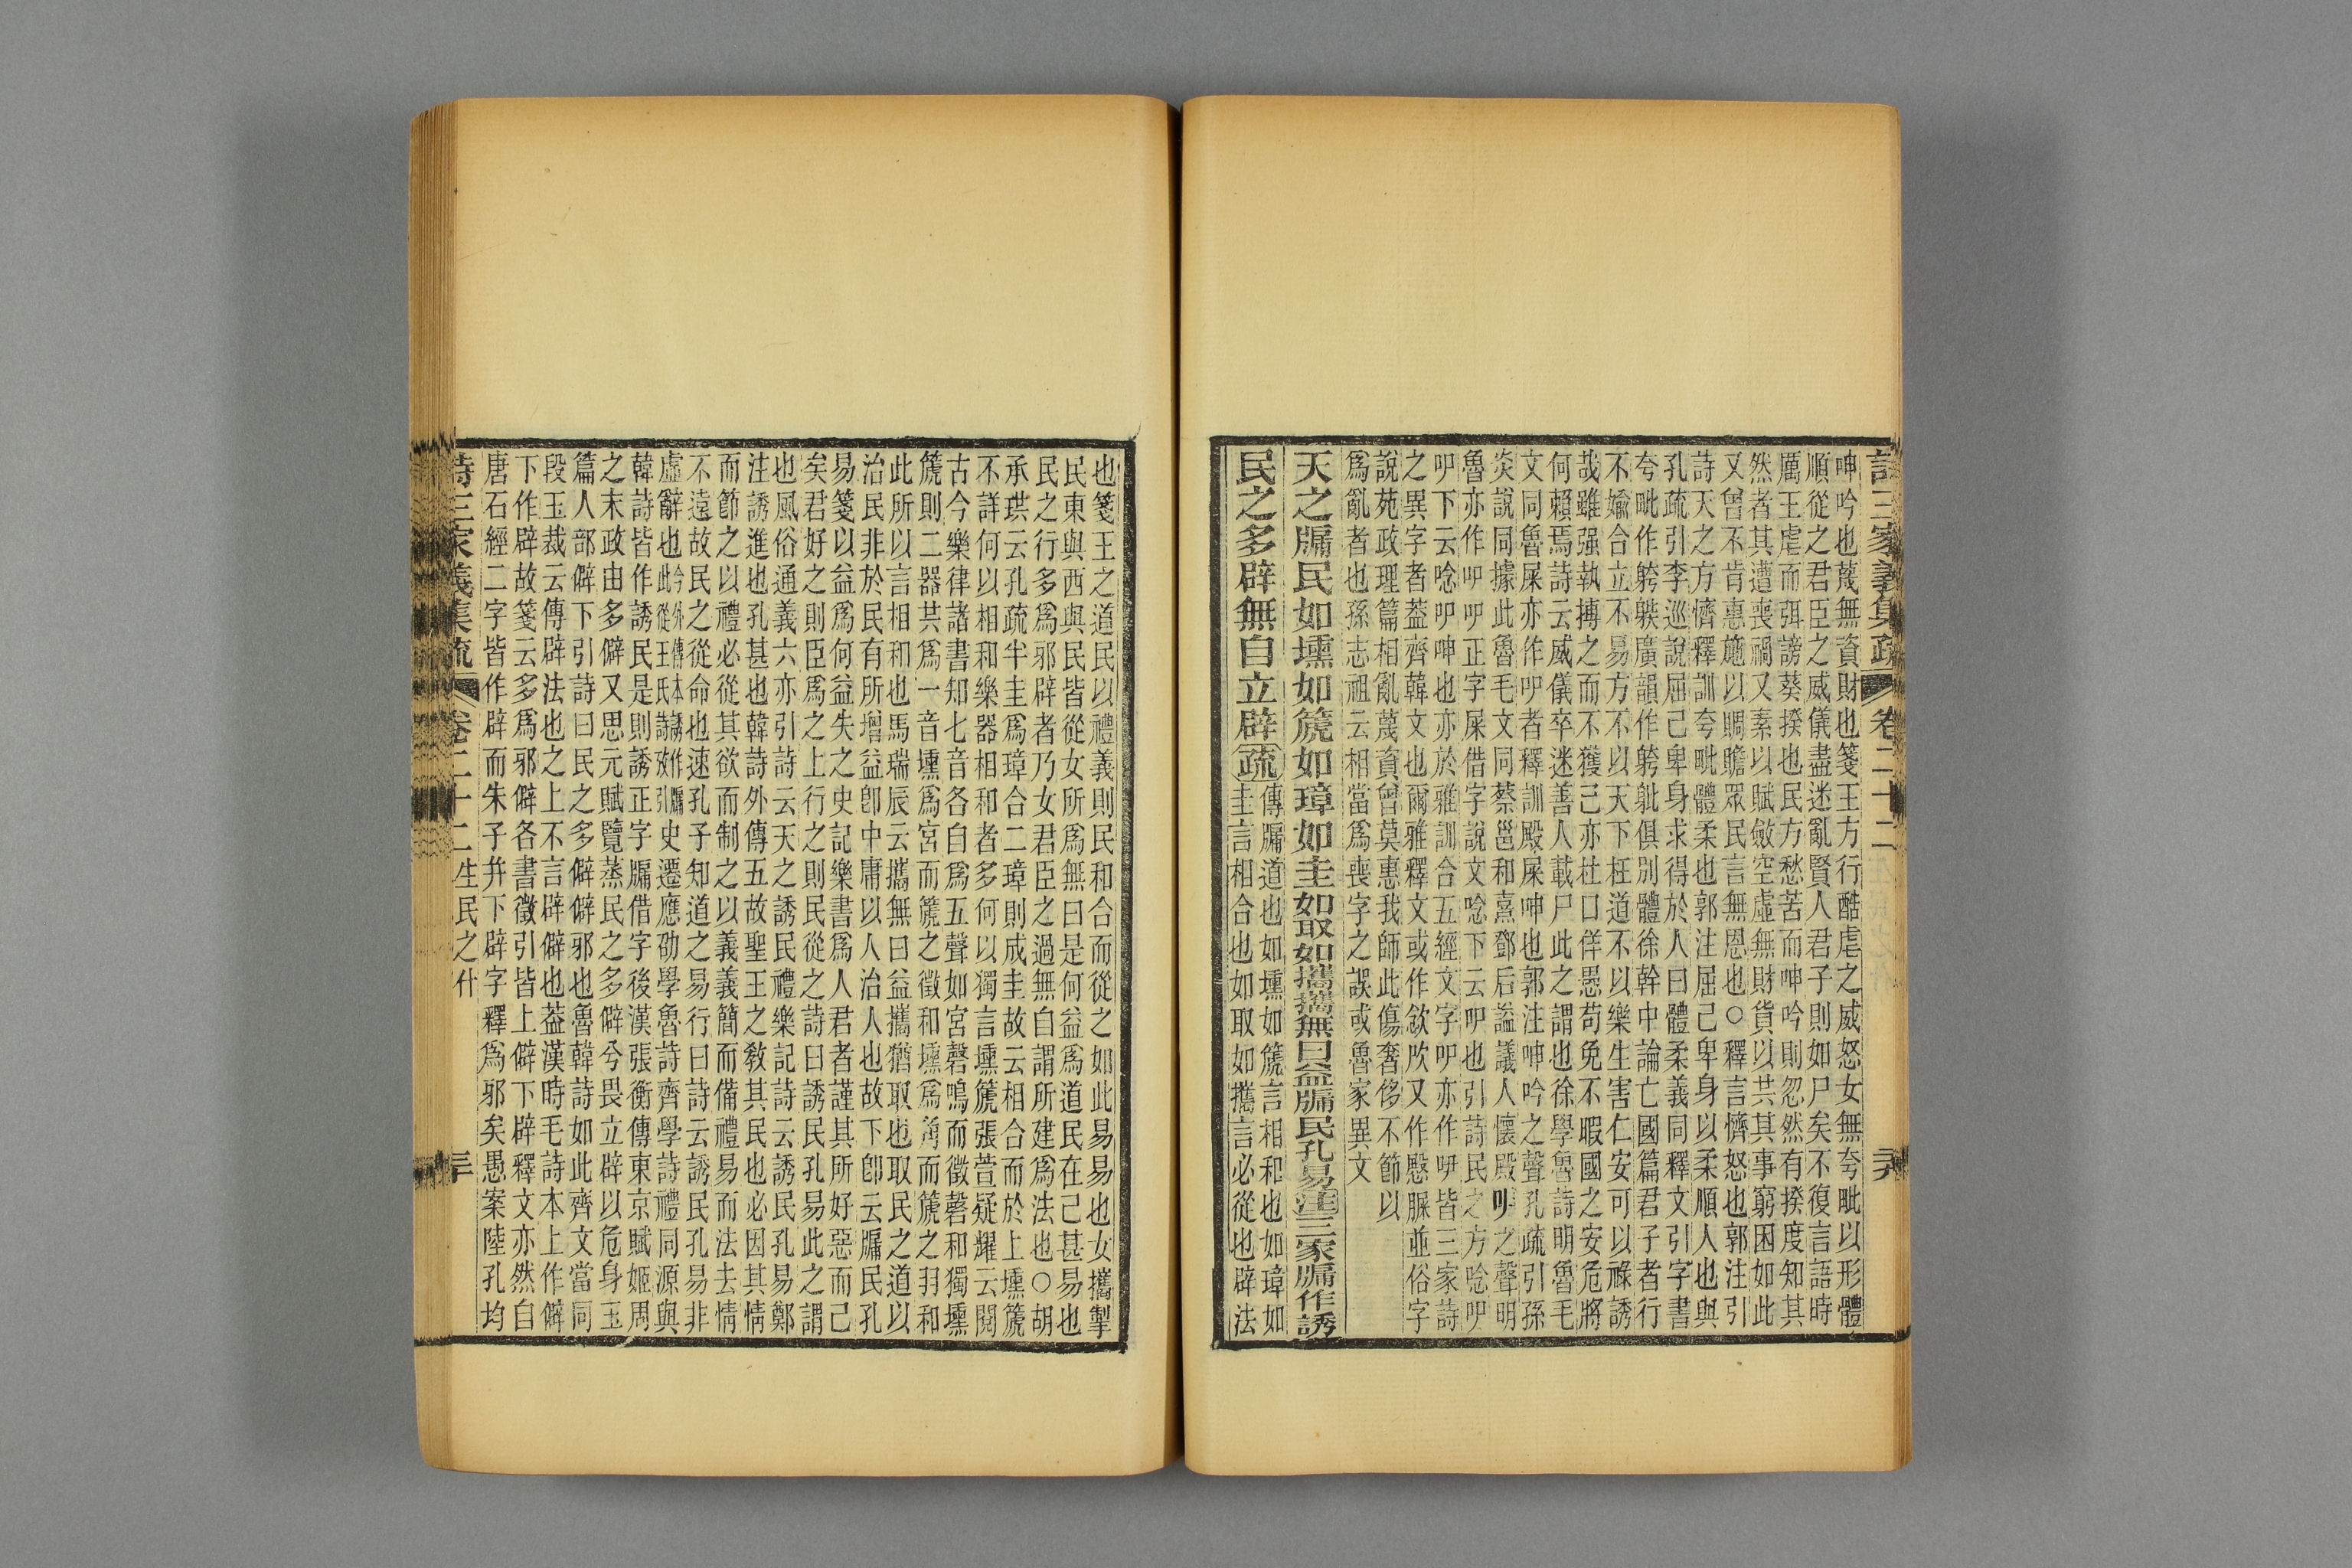 詩三家義集疏 卷二十二
呻吟也蔑無資財也箋王方行酷虐之威怒女無夸毗以形體
順從之君臣之威儀盡迷亂賢人君子則如尸矣不復言語時
厲王虐而弭謗葵揆也民方愁苦而呻吟則忽然有揆度知其
然者其遭喪禍又素以賦斂空虛無財貨以共其事窮困如此
又曾不肯惠施以賙贍眾民言無恩也○釋言懠怒也郭注引
詩天之方懠釋訓夸毗體柔也郭注屈己卑身以柔順人也與
孔疏引李巡說屈己卑身求得於人曰體柔義同釋文引字書
夸毗作廣韻作俱別體徐幹中論亡國篇君子者行
不婾合立不易方不以天下枉道不以樂生害仁安可以祿誘
哉雖强執搏之而不獲己亦杜口佯愚苟免不暇國之安危將
何賴焉詩云威儀卒迷善人載尸此之謂也徐學魯詩明魯毛
文同魯屎亦作吚者釋訓殿屎呻也郭注呻吟之聲孔疏引孫
炎說同據此魯毛文同蔡邕和熹鄧后謚議人懷殿吚之聲明
魯亦作吚吚正字屎借字說文唸下云吚也引詩民之方唸吚
吚下云唸吚呻也亦於雅訓合五經文字吚亦作皆三家詩
之異字者葢齊韓文也爾雅釋文或作又作慇脲並俗字
說苑政理篇相亂蔑資曾莫惠我師此傷奢侈不節以
爲亂者也孫志祖云相當爲喪字之誤或魯家異文
天之牖民如壎如篪如璋如圭如取如攜攜無曰益牖民孔易注三家牖作誘
民之多辟無自立辟疏傳牖道也如壎如篪言相和也如璋如
圭言相合也如取如攜言必從也辟法
也箋王之道民以禮義則民和合而從之如此易易也女攜掣
民東與西與民皆從女所爲無曰是何益爲道民在己甚易也
民之行多爲邪辟者乃女君臣之過無自謂所建爲法也○胡
承珙云孔疏半圭爲璋合二璋則成圭故云相合而於上壎篪
不詳何以相和樂器相和者多何以獨言壎篪張萱疑耀云閱
古今樂律諸書知七音各自爲五聲如宮磬鳴而徵磬和獨壎
篪則二器共爲一音壎爲宮而篪之徵和壎爲角而篪之羽和
此所以言相和也馬瑞辰云攜無曰益攜猶取也取民之道以
治民非於民有所增益卽中庸以人治人也故下卽云牖民孔
易箋以益爲何益失之史記樂書爲人君者謹其所好惡而己
矣君好之則臣爲之上行之則民從之詩曰誘民孔易此之謂
也風俗通義六亦引詩云天之誘民禮樂記詩云誘民孔易鄭
注誘進也孔甚也韓詩外傳五故聖王之敎其民也必因其情
而節之以禮必從其欲而制之以義義簡而備禮易而法去情
不遠故民之從命也速孔子知道之易行曰詩云誘民孔易非
虛辭也今外傳本誘作牖此從王氏詩攷引史遷應劭學魯詩齊學詩禮同源與
韓詩皆作誘民是則誘正字牖借字後漢張衡傳東京賦姬周
之末政由多僻又思元賦覽蒸民之多僻兮畏立辟以危身玉
篇人部僻下引詩曰民之多僻僻邪也魯韓詩如此齊文當同
段玉裁云傳辟法也之上不言辟僻也葢漢時毛詩本上作僻
下作辟故箋云多爲邪僻各書徵引皆上僻下辟釋文亦然自
唐石經二字皆作辟而朱子幷下辟字釋爲邪矣愚案陸孔均
詩三家義集疏 卷二十二 生民之什 三十